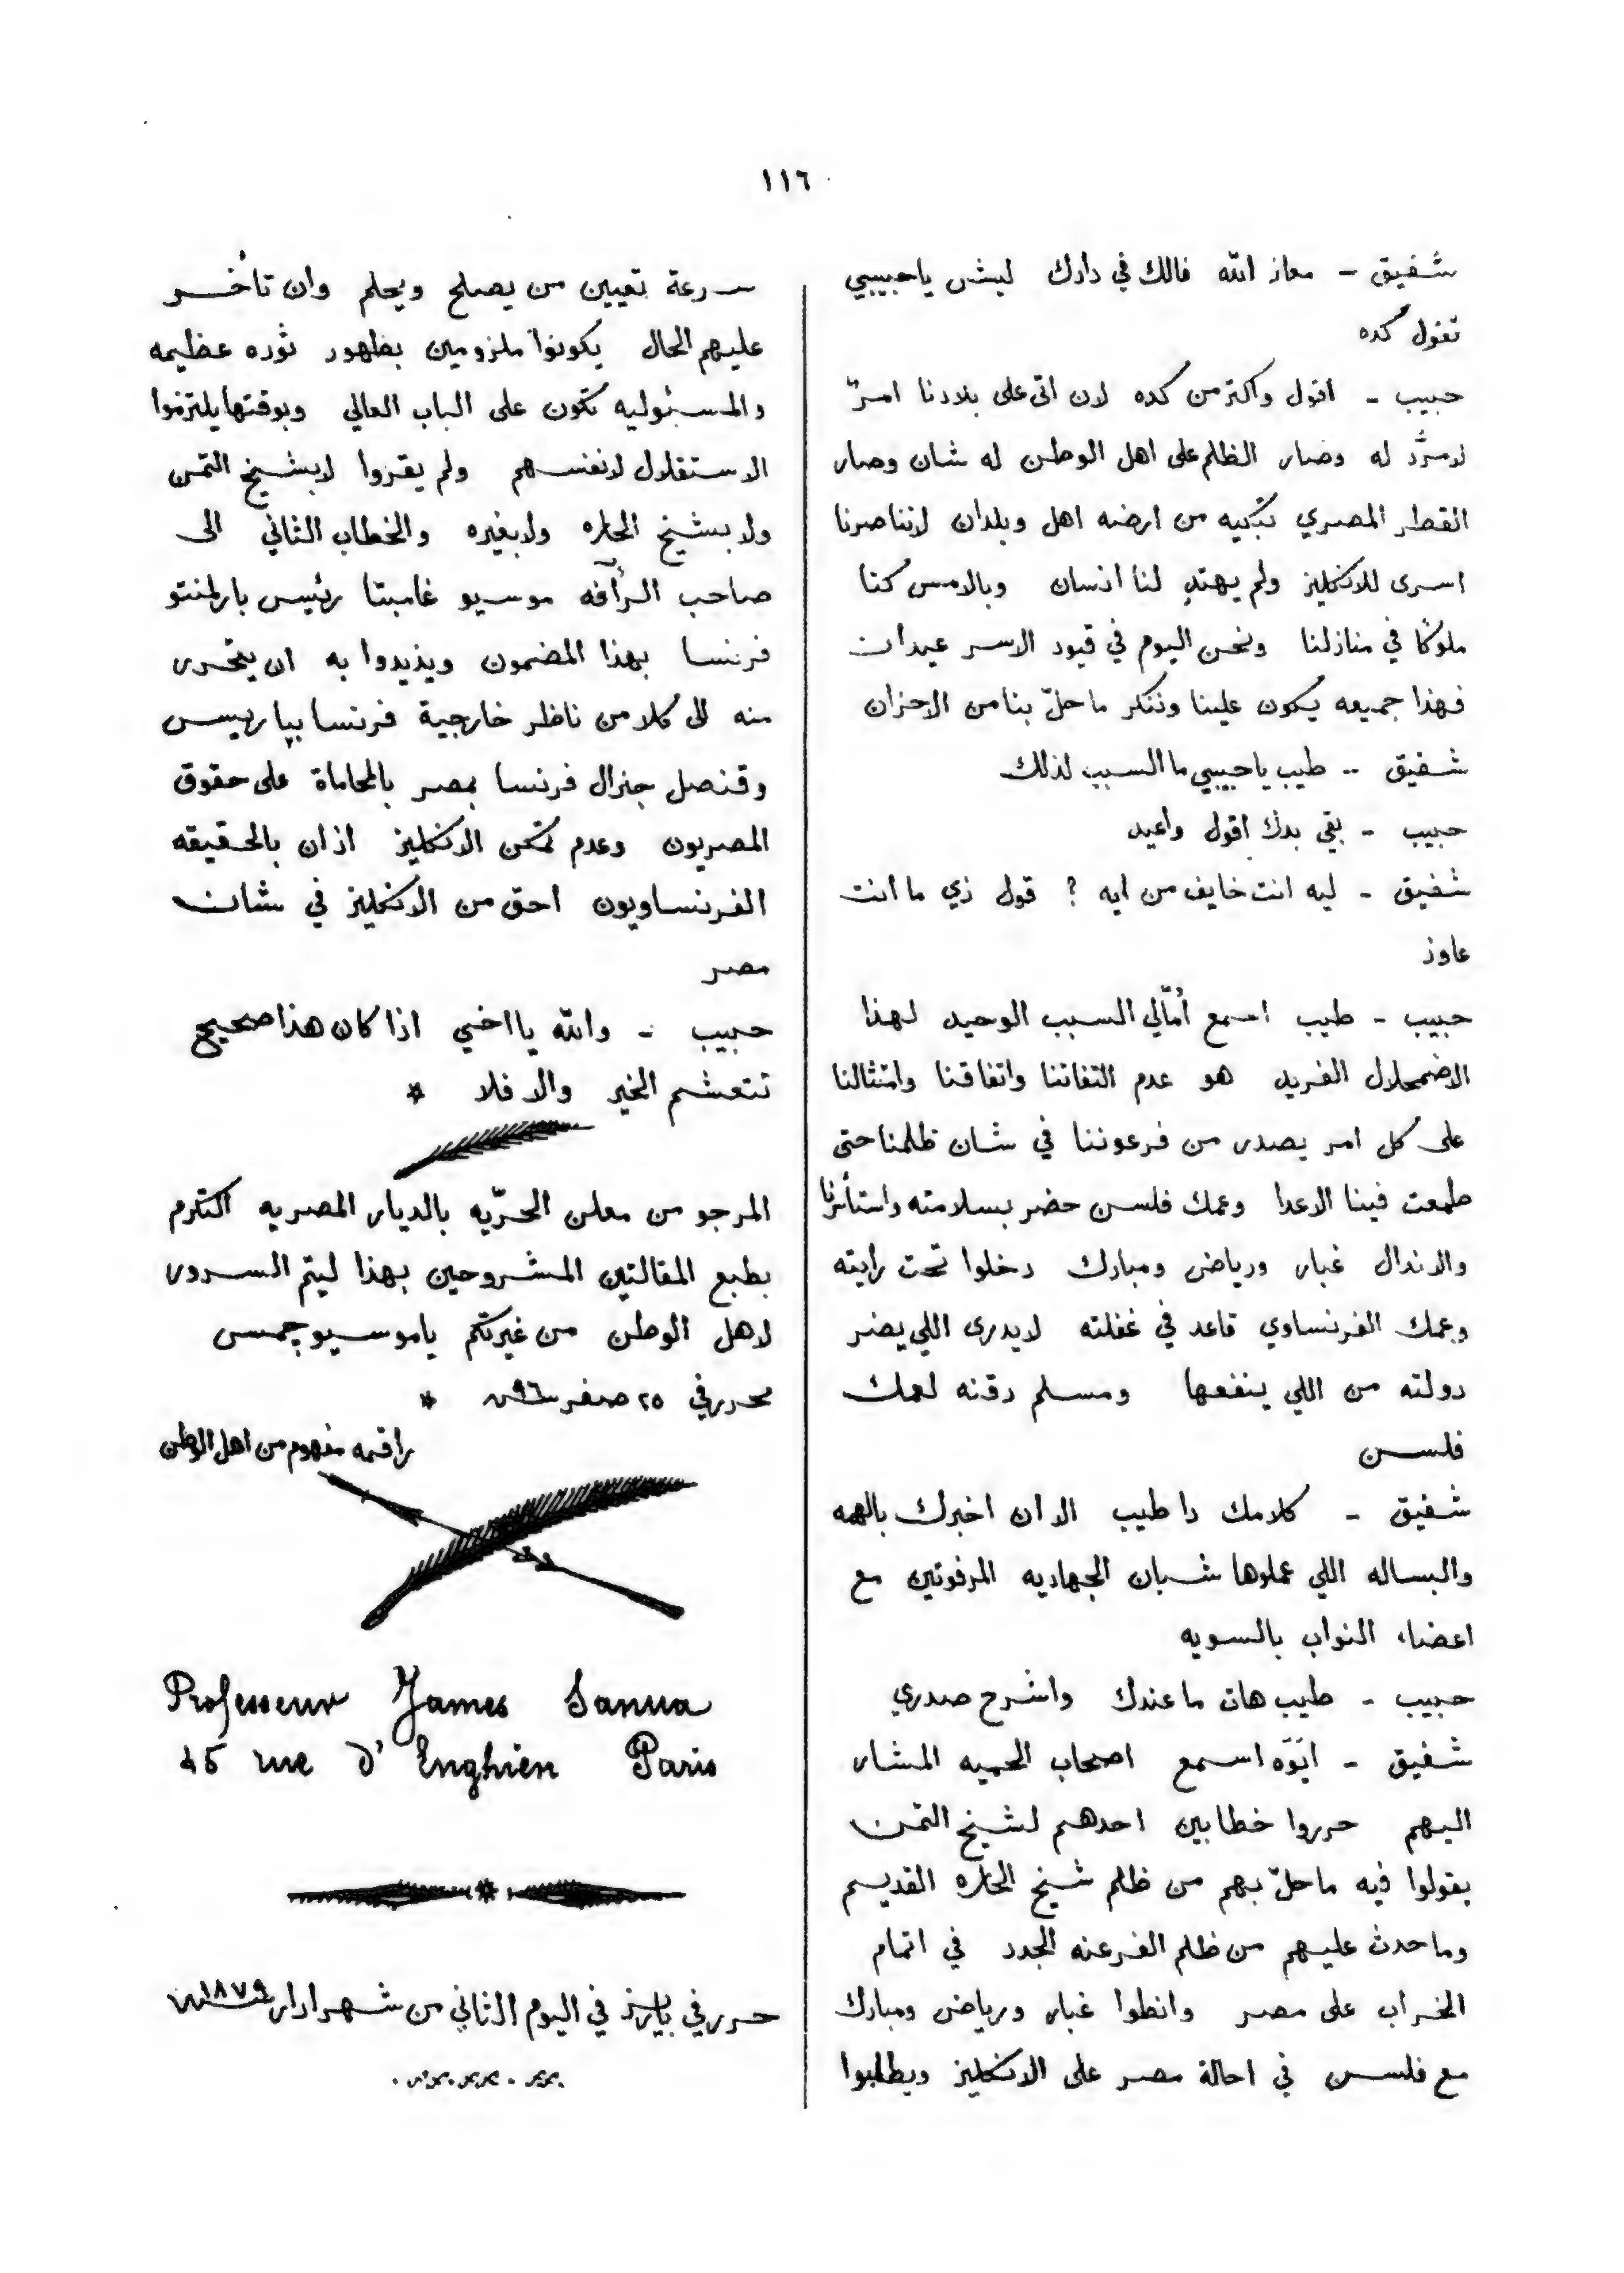 ١١٦
شفيق - معاز الله فالك في دارك ليش ياحبيبي
تقول كده
حبيب - اقول واكتر من كده لان اتى على بلادنا امرٌ
لامردّ له وصار الظلم على اهل الوطن له شان وصار
القطر المصري تبكيه من ارضه اهل وبلدان لاننا صرنا
اسرى للانكليز ولم يهتدِ لنا انسان وبالامس كنا
ملوكًا في منازلنا ونحن اليوم في قيود الاسر عبدان
فهذا جميعه يكون علينا وننكر ما حلّ بنا من الاحزان
شفيق - طيب يا حبيبي ما السبب لذلك
حبيب - بقى بدك اقول واعيد
شفيق - ليه انت خايف من ايه ؟ قول زي ما انت
عاوز
حبيب - طيب اسمع أمّالي السبب الوحيد لهذا
الاضمحلال الفريد هو عدم التفاتنا واتفاقنا وامتثالنا
على كل امر يصدر من فرعوننا في شان ظلمنا حتى
طمعت فينا الاعدا وعمك فلسن حضر بسلامته واستأثرنا
والاندال غبار ورياض ومبارك دخلوا تحت رايته
وعمك الفرنساوي قاعد في غفلته لايدرى اللي يضر
دولته من اللي ينفعها ومسلم دقنه لعمك
فلسن
شفيق - كلامك دا طيب الا ان اخبرك بالهمه
والبساله اللي عملوها شبان الجهاديه المرفوتين مع
اعضاء النواب بالسويه
حبيب - طيب هات ما عندك واشرح صدري
شفيق - ايَوَه اسمع اصحاب الحميه المشار
اليهم حرروا خطابين احدهم لشيخ التمن
يقولوا فيه ما حلّ بهم من ظلم شيخ الحاره القديم
وما حدث عليهم من ظلم الفرعنه الجدد في اتمام
الخراب على مصر وانطوا غبار ورياض ومبارك
مع فلسن في احالة مصر على الانكليز ويطلبوا
سرعة تعيين من يصلح ويحلم وان تأخر
عليهم الحال يكونوا ملزومين بظهور ثوره عظيمه
والمسئوليه تكون على الباب العالي وبوقتها يلتزموا
الاستقلال لانفسهم ولم يقروا لا بشيخ التمن
ولا بشيخ الحاره ولا بغيره والخطاب الثاني الى
صاحب الرأفه موسيو غامبتا رئيس بارلمنتو
فرنسا بهذا المضمون ويذيدوا به ان يتحرر
منه الى كلا من ناظر خارجية فرنسا بپاريس
وقنصل جنرال فرنسا بمصر بالمحاماة على حقوق
المصريون وعدم تمكن الانكليز اذ ان بالحقيقه
الفرنساويون احق من الانكليز في شان
مصر
حبيب - والله يا اخي اذا كان هذا صحيح
نتعشم الخير والا فلا *
المرجو من معلن الحرّيه بالديار المصريه التكرم
بطبع المقالتين المشروحين بهذا ليتم السرور
لاهل الوطن من غيرتكم ياموسيو جمس
محرر في ٢٥ صفر سنة ٩٦ *
راقمه مفهوم من اهل الوطن
Professeur James Sanua
45 rue d' Enghien Paris
حرر في پاريز في اليوم الثاني من شهر ادار سنة ١٨٧٩